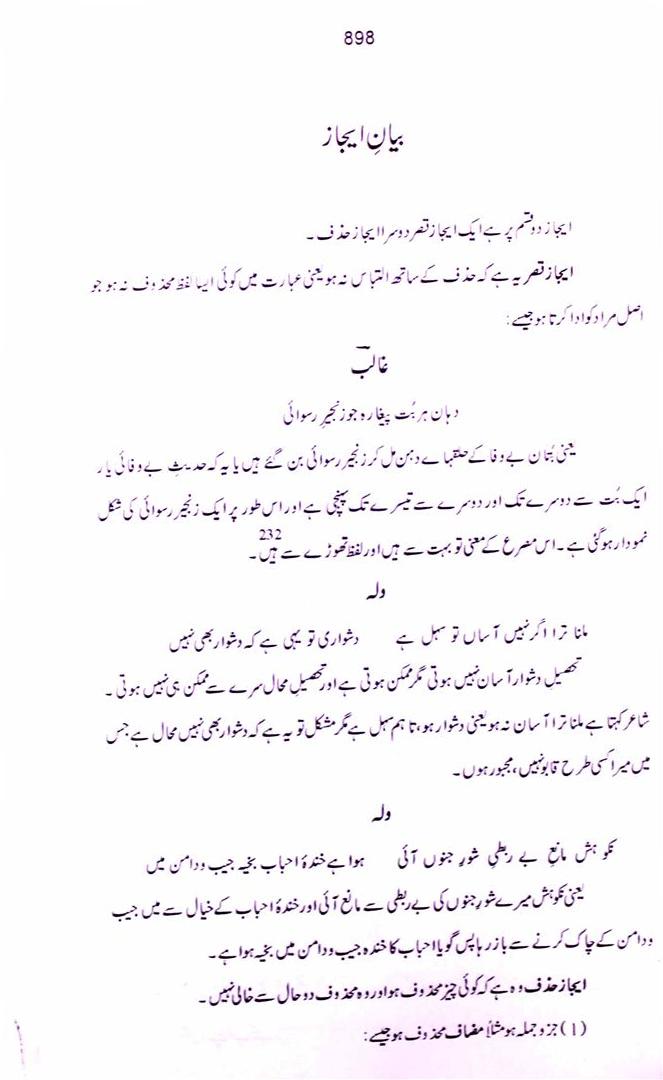 898
بیانِ ایجاز
ایجاز دو قسم پر ہے ایک ایجاز قصر دوسرا ایجاز حذف۔
ایجاز قصر یہ ہے کہ حذف کے ساتھ التباس نہ ہو یعنی عبارت میں کوئی ایسا لفظ محذوف نہ ہو جو
اصل مراد کو ادا کرتا ہو جیسے:
غالب
دہان ہر بُت پیغارہ جو زنجیرِ رسوائی
یعنی بُتان بے وفا کے حلقہاے دہن مل کر زنجیر رسوائی بن گئے ہیں یا یہ کہ حدیثِ بے وفائی یار
ایک بُت سے دوسرے تک اور دوسرے سے تیسرے تک پہنچی ہے اور اس طور پر ایک زنجیر رسوائی کی شکل
نمودار ہو گئی ہے۔ اس مصرع کے معنی تو بہت سے ہیں اور لفظ تھوڑے سے ہیں۔232
ولہ
ملنا ترا اگر نہیں آساں تو سہل ہے دشواری تو یہی ہے کہ دشوار بھی نہیں
تحصیلِ دشوار آسان نہیں ہوتی مگر ممکن ہوتی ہے اور تحصیلِ محال سرے سے ممکن ہی نہیں ہوتی۔
شاعر کہتا ہے ملنا ترا آسان نہ ہو یعنی دشوار ہو، تاہم سہل ہے مگر مشکل تو یہ ہے کہ دشوار بھی نہیں محال ہے جس
میں میرا کسی طرح قابو نہیں، مجبور ہوں۔
ولہ
نکوہش مانعِ بے ربطیِ شورِ جنوں آئی ہوا ہے خندۂ احباب بخیہ جیب و دامن میں
یعنی نکوہش میرے شورِ جنوں کی بے ربطی سے مانع آئی اور خندۂ احباب کے خیال سے میں جیب
و دامن کے چاک کرنے سے باز رہا پس گویا احباب کا خندہ جیب و دامن میں بخیہ ہوا ہے۔
ایجاز حذف وہ ہے کہ کوئی چیز محذوف ہو اور وہ محذوف دو حال سے خالی نہیں۔
(۱) جزو جملہ ہو مثلاً مضاف محذوف ہو جیسے: